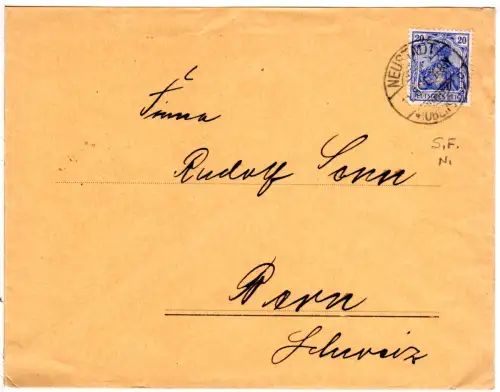 20 20
NEUSTADT
DEUTSCHES REICH
S.F.
N.
Firma
Rudolf Senn
Bern
Schweiz